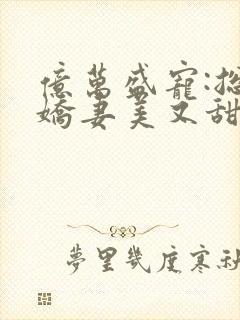 億萬盛寵:總
嬌妻美又甜
夢里幾度寒秋